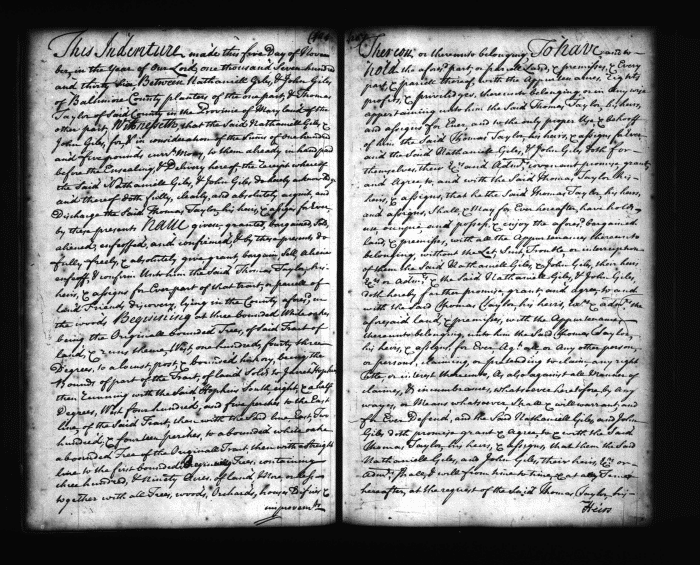 This Indenture, made this five Day of Novem
ber in the Year of Our Lord one thousand Seven hundred
and thirty Six Between Nathaniell Giles, & John Giles
of Baltimore County planters of the one part, & Thomas
Taylor of Said County in the Province of Maryland of the
other part, Witnesseth, that the Said Nathaniell Giles, &
John Giles, for & in consideration of the Sum of one hundred
and five pounds curr.t Mony, to them already in hand paid
before the Ensealing, & Delivery hereof, the receipt whereof
the Said Nathaniell Giles, & John Giles do hereby acknowledge
and thereof doth fully, clearly, and absolutely acquit, and
Discharge the Said Thomas Taylor, his heirs, & assigns for Ever,
by these presents have given, granted, bargained, Sold,
aliened, enfeoffed, and confirmed, & by these presents, do
fully, freely, & absolutely give, grant, bargain, Sell, aliene
enfeoff, & confirm Unto him the Said Thomas Taylor, his
heirs, & assigns for Ever part of that tract, or parcell of
Land Friends discovery, lying in the County afores.d in
the woods, Beginning at three bounded White oakes,
being the Originall bounded Trees, of Said Tract of
land, & runs thence, West, one hundred, forty three
Degrees, to a locust, post, & bounded hickory, being the
bounds of part of the Tract, of land Sold to James Hopkins
then running with the Said Hopkins South, eight, & a half
Degrees, West four hundred, and five perches to the East
line, of the Said Tract, then with the Said line East, Two
hundred, & fourteen perches, to a bounded white oake
a bounded Tree of the Originall Tract, then with a straight
line to the first bounded Trees, containing
three hundred, & Ninety Acres, of land, More or less,
together with all Trees, woods, Orchards, houses
improvem.ts
Thereon, or thereunto belonging To have and to
hold the afores.d part or parcell Land, & premises, & Every
part, & parcell thereof, with the Appurtenances, Rights
profits, & priviledges, thereunto belonging or in any wise
appertaining unto him the Said Thomas Taylor, his heirs,
and assigns for Ever, and to the only proper Use & behoof
of him the Said Thomas Taylor, his heirs, & assigns for Ever
and the Said Nathaniell Giles, & John Giles doth for
themselves, their Ex.rs and Adm.rs covenant promise grant
and Agree, to, and with the Said Thomas Taylor, his
heirs, & assigns, that he the Said Thomas Taylor, his heirs,
and assigns, Shall, & May for Ever hereafter, have hold,
use occupie and possess, & enjoy the afores.d bargained
land & premises, with all the Appurtenances thereunto
belonging, without the Let, Suit, Trouble or interruption
of them the Said Nathaniell Giles, & John Giles, their heirs
Ex.rs or Adm.rs & the Said Nathaniell Giles, & John Giles,
doth hereby further promise, grant and agree, to and
with the Said Thomas Taylor, his heirs, Ex.rs & adm.rs the
aforesaid land, & premises, with the Appurtenances
thereunto belonging, unto him the Said Thomas Taylor,
his heirs, & assigns, for Ever, Ag.st all or Any other person,
or persons, claiming, or pretending to claim, any right
title, or interest thereunto, As also against all Manner of
claims, & incumbrance, whatsoever heretofore, by Any
ways, or Means whatsoever Shall & will warrant, and
for Ever Defend, and the Said Nathaniell Giles, and John
Giles doth promise grant & Agree to & with the Said
Thomas Taylor, his heirs, & assigns, that them the Said
Nathaniell Giles, and John Giles, their heirs, Ex.rs or
Adm.rs Shall, & will from time to time, & at all Times
hereafter, at the request of the Said Thomas Taylor, his
Heirs